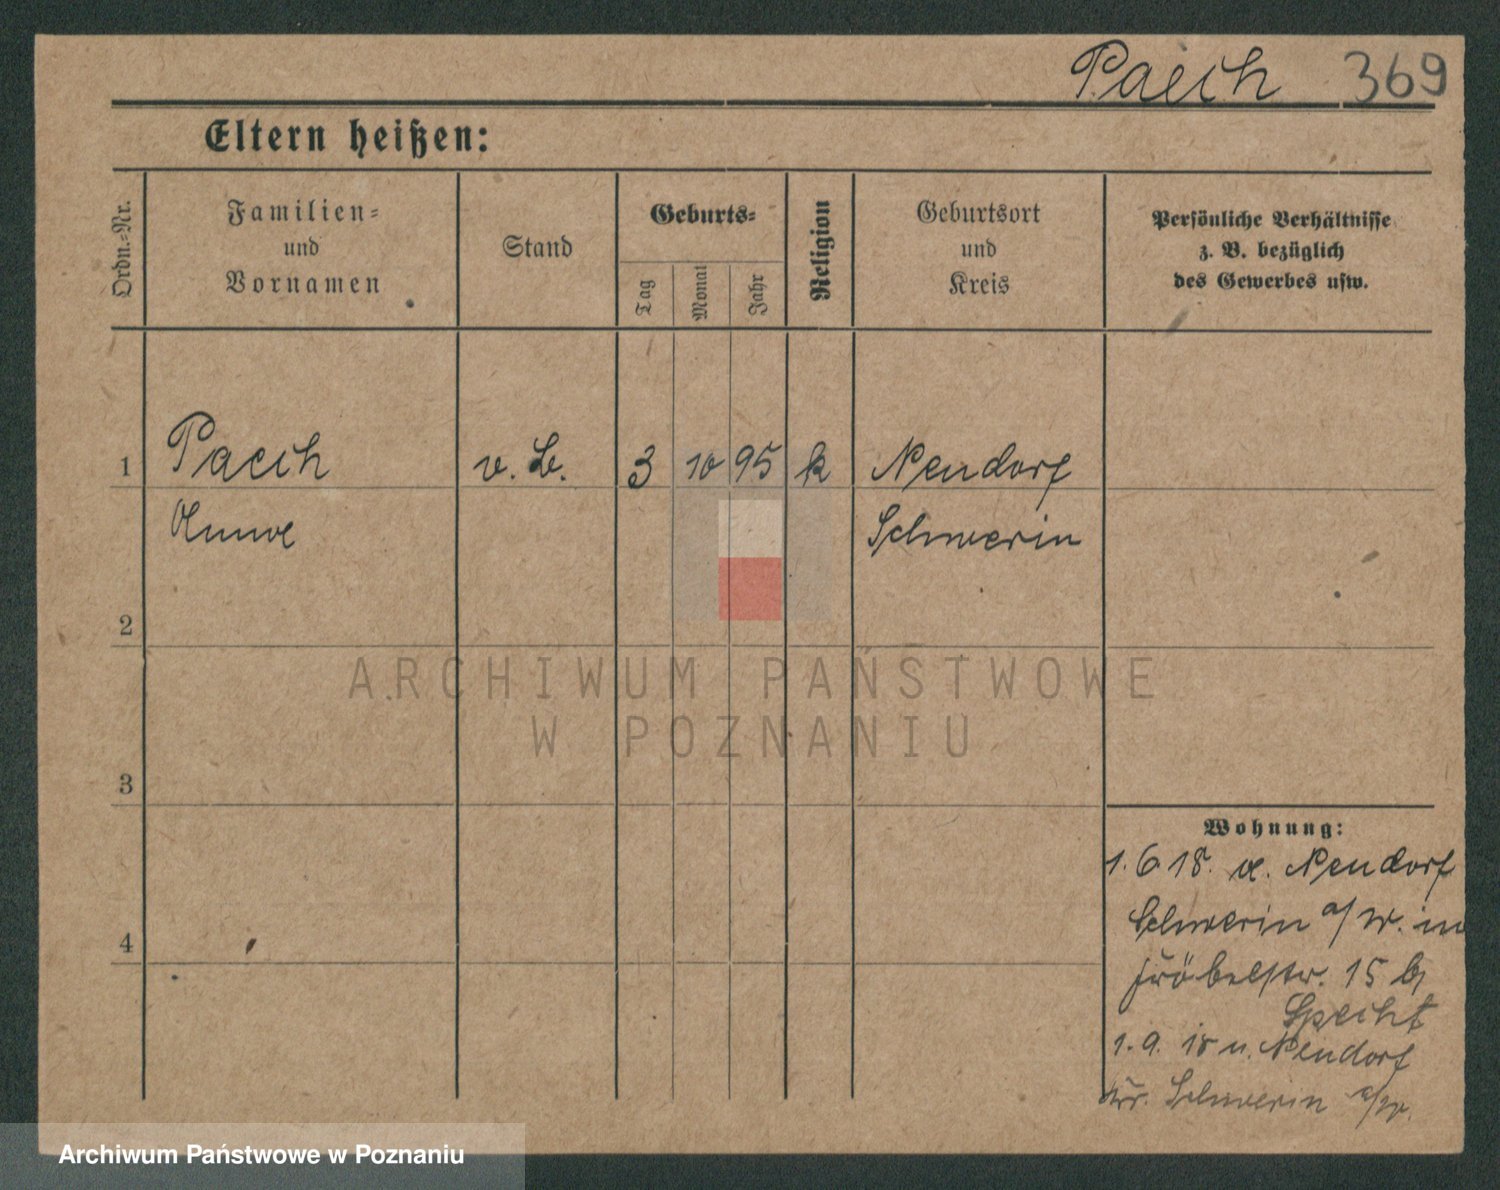 Paech 369
Eltern heißen:
Ordn.-Nr.
Familien-
und
Vornamen
Stand
Geburts-
Tag
Monat
Jahr
Religion
Geburtsort
und
Kreis
Persönliche Verhältnisse
z. B. bezüglich
des Gewerbes usw.
1 Paech v. B. 3 10 95 k Neudorf
Schwerin
2
3
4
Wohnung:
1. 6 18. v. Neudorf
Schwerin a/W. in
Fröbelstr. 15 b/
Specht
1. 9. 18 n. Neudorf
Kr. Schwerin a/W.
ARCHIWUM PAŃSTWOWE
W POZNANIU
Archiwum Państwowe w Poznaniu